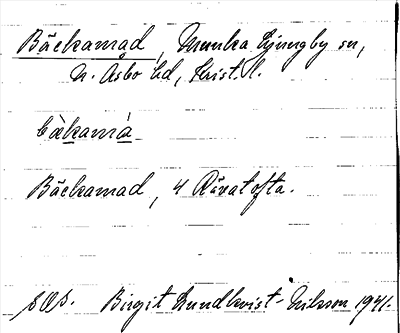 Bäckamad, Munka Ljungby sn,
N. Åsbo hd, Krist. l.
bàkamá
Bäckamad, 4 Rävatofta.
SOS. Birgit Lundkvist-Nilsson 1941.